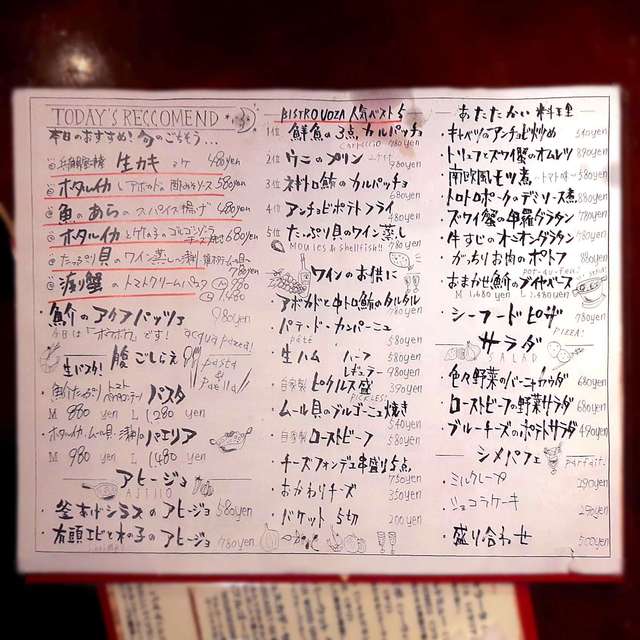 TODAY'S RECCOMEND
本日のおすすめ！旬のごちそう...
生カキ 480yen
ホタルイカ 580yen
魚のあらのスパイス揚げ 480yen
ホタルイカとケの子のゴルゴンゾーラ 680yen
たっぷり貝のワイン蒸し 780yen
渡り蟹のトマトクリームパスタ
・魚介のアクアパッツァ 980yen
acqua pazza!
生パスタ! 腹ごしらえ pasta paella
魚介たっぷり トマト パスタ
M 980 yen L 1,280 yen
ホタルイカ、ムール貝 パエリア
M 980 yen L 1,480 yen
アヒージョ
AJILLO
・釜あげシラスのアヒージョ 580yen
・有頭エビと木の子のアヒージョ 780yen
BISTRO UOZA 人気ベスト5
1位 鮮魚の3点カルパッチョ
980yen
2位 ウニのプリン
3位 ネギトロ鮪のカルパッチョ
680yen
4位 アンチョビポテトフライ
480yen
5位 たっぷり貝のワイン蒸し
MOULES & Shellfish!! 780yen
ワインのお供に
・アボカドと中トロ鮪のタルタル
780yen
・パテ・ド・カンパーニュ
pâté 580yen
・生ハム ハーフ 580yen
レギュラー 980yen
・自家製 ピクルス盛 390yen
PICKLES!
・ムール貝のブルゴーニュ焼き
540yen
・自家製 ローストビーフ 580yen
・チーズフォンデュ串盛り5点
750yen
・おかわりチーズ 350yen
・バケット 5切 200yen
あたたかい料理
・キャベツのアンチョビ炒め
・トリュフとズワイ蟹のオムレツ
・南欧風モツ煮 -トマト味- 580yen
・トロトロポークのデミソース煮 880yen
・ズワイ蟹の甲羅グラタン 780yen
・牛すじのオニオングラタン 780yen
・がっちりお肉のポトフ 880yen
pot-au-feu!
・おまかせ魚介のブイヤベース
M 1,680 yen L 2,480yen
・シーフードピザ 780yen
PIZZA!
サラダ
SALAD
・色々野菜のバーニャカウダ 680yen
・ローストビーフの野菜サラダ 680yen
・ブルーチーズのポテトサラダ 490yen
シメパフェ parfait.
・ミルクレープ 290yen
・ショコラケーキ 290yen
・盛り合わせ 500yen